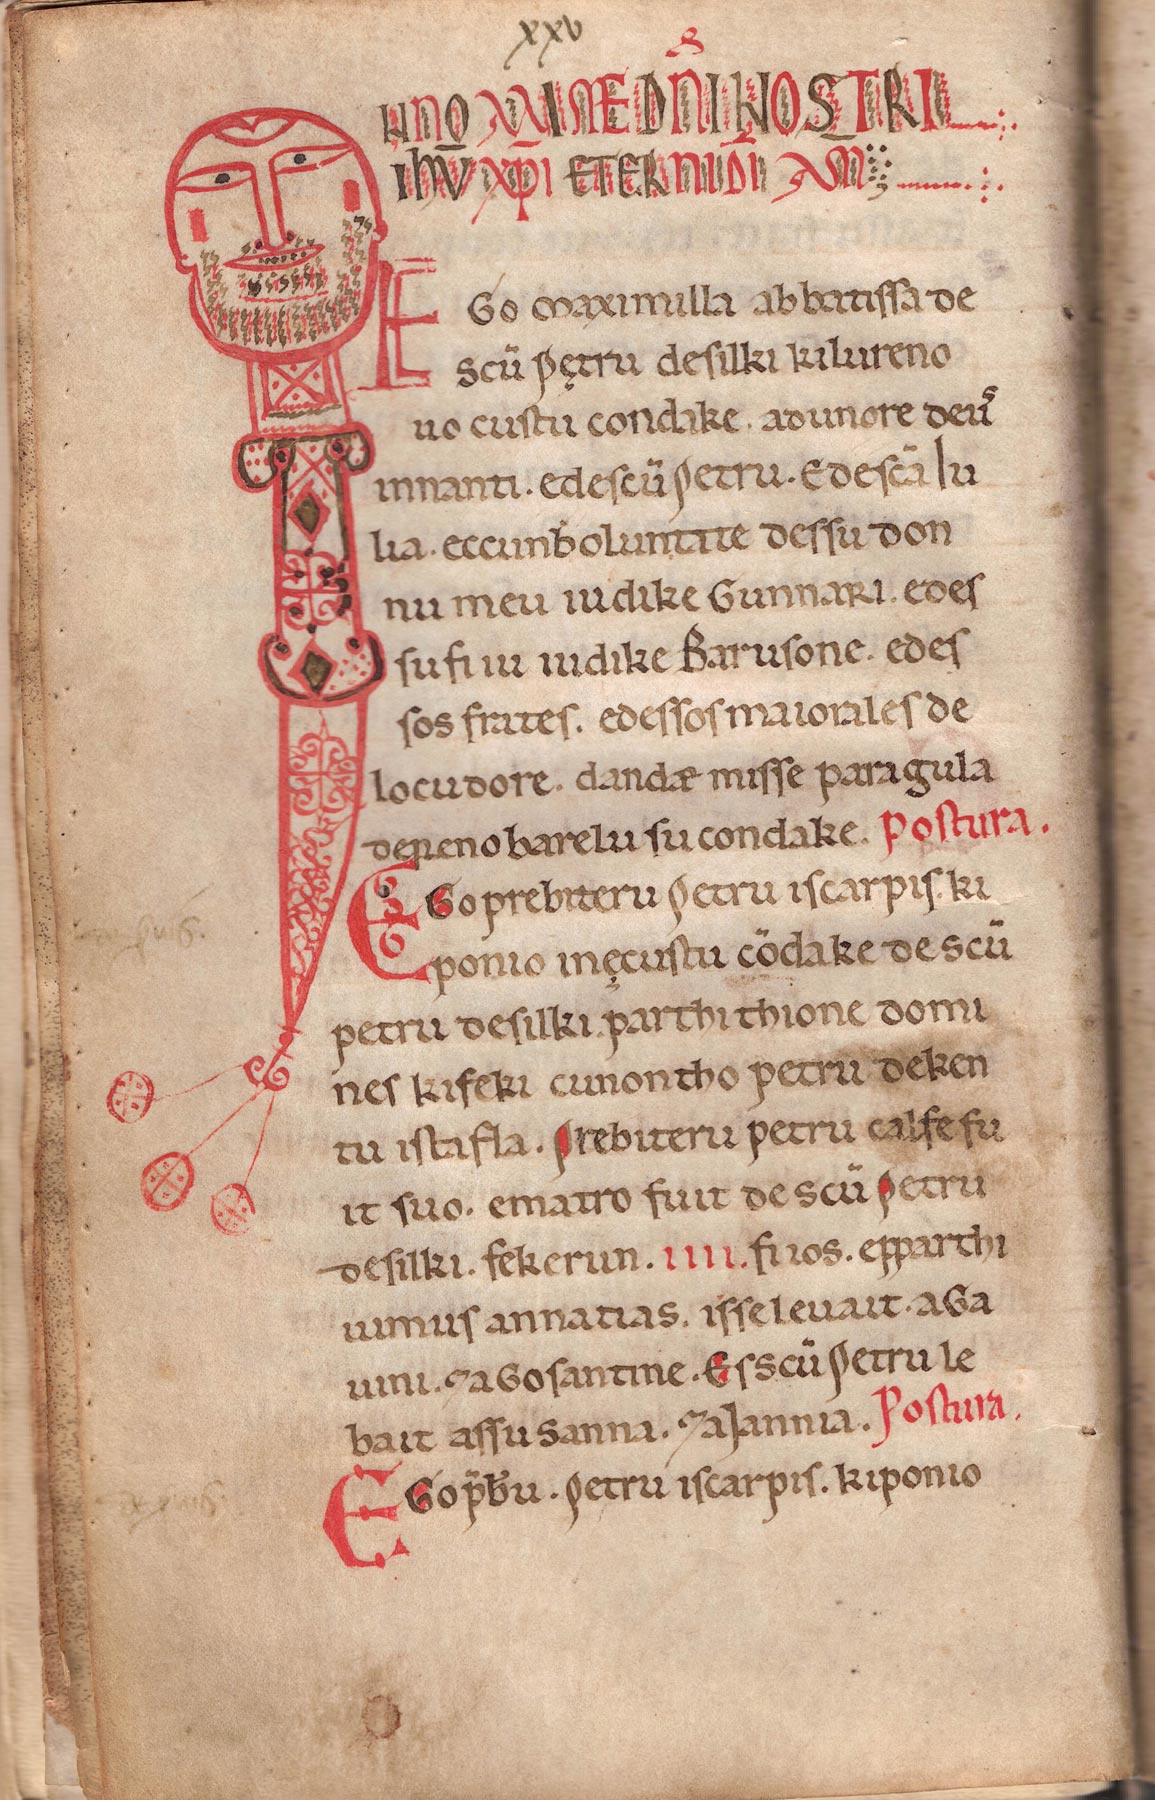 xxv
IN NOMINE DNI NOSTRI
IHU XPI ETERNI DI AM
EGo Maximilla abbatissa de
scu Petru de silki ki lu reno
uo custu condake. ad unore deus
innanti. e de scu Petru. E de sca Iu
lia. ec cun boluntate dessu don
nu meu iudike Gunnari. e des
su fiiu iudike Barusone. e des
sos frates. e dessos maiorales de
locudore. danda misse paragula
de renobarelu su condake. Postura.
EGo prebiteru Petru iscarpis. ki
ponio in ęcustu cōdake de scu
petru de silki. parthithione d'omi
nes ki feki cun ontho petru de ken
tu istafla. Prebiteru petru calfe fu
it suo. e matro fuit de scu Petru
de silki. fekerun. IIII. fiios. e pparthi
uimus annatias. isse leuait. a Ga
uini. 7 a Gosantine. E s scu Petru le
bait assu sanna. 7 a Jannia. Postura.
EGo pbu. Petru iscarpis. ki ponio